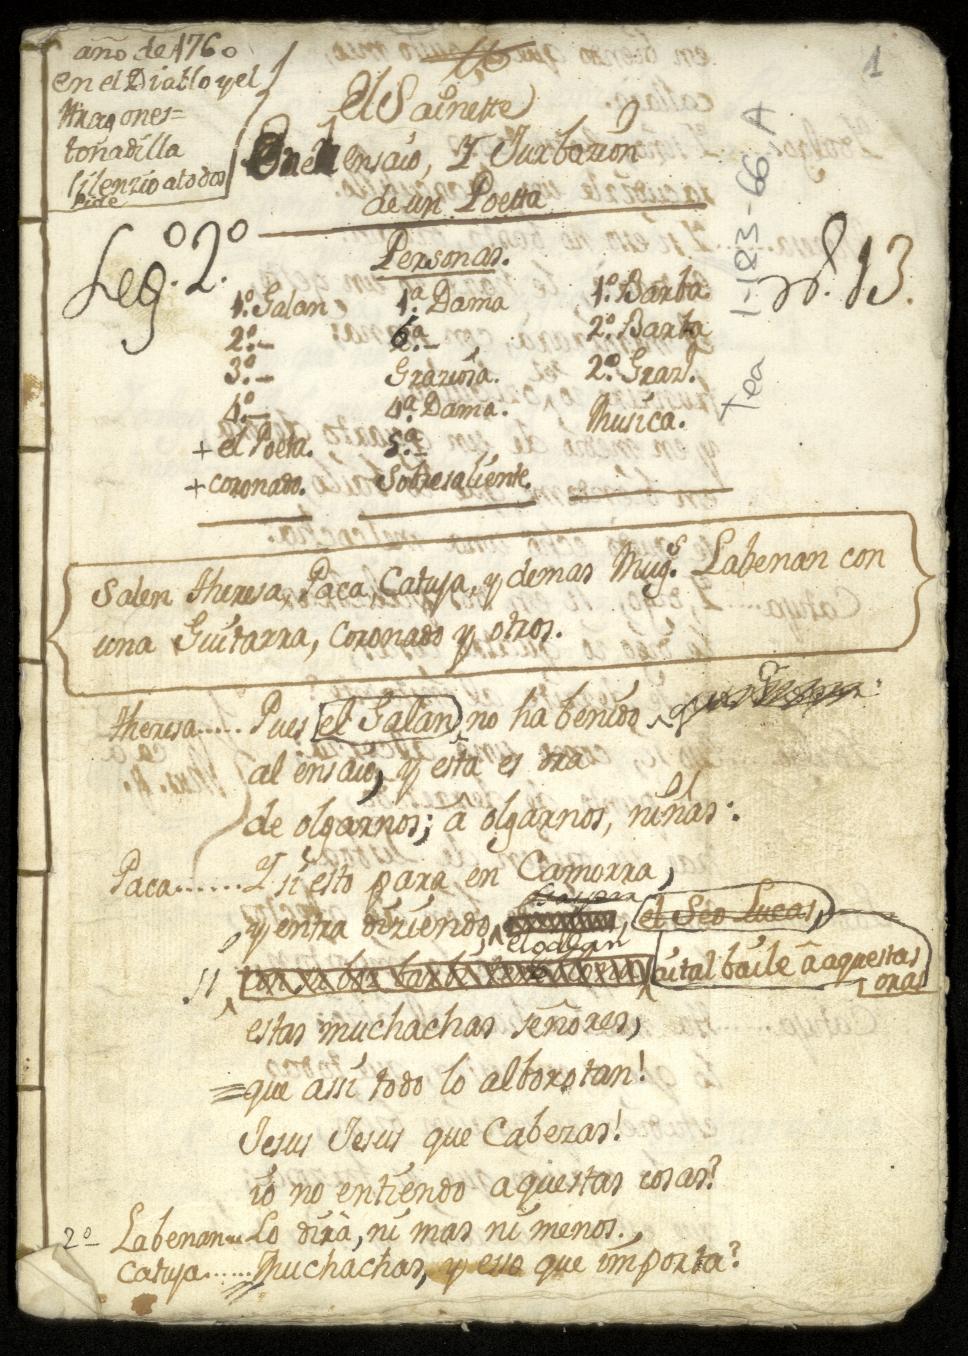 año de 1760
en el Diablo yel
Aragones=
tonadilla
silenzio atodos
Pide
1
el Sainette
En el ensaio, I Turbazion
de un Poetta
Leg.º 2.º
nº. 13.
Tea 1-183-66 A
Personas.
1.º Galan 1.ª Dama 1.º Barba
2.º- 6.ª- 2.º Barba
3.º- Graziosa. 2.º Graz.
4.º- 4.ª Dama. Musica.
+ el Poeta. 5.ª-
+ coronado. Sobresaliente.
Salen theresa, Paca Catuja, y demas Mug.s Labenan con
una Guitarra, coronado y otros.
theresa..... Pues el Galan, no ha benido
al ensaio, y esta es ora
de olgarnos; à olgarnos, niñas:
Paca....... I si esto para en Camorra,
y entra diziendo, el Seo Lucas,
àtal baile â aquestas
oras
estas muchachas señores,
=que assi todo lo alborotan!
Jesus Jesus que Cabezas!
io no entiendo aquestas cosas?
2º Labenan.. Lo dirà, ni mas ni menos.
Catuja..... Muchachas, y esso que importa?